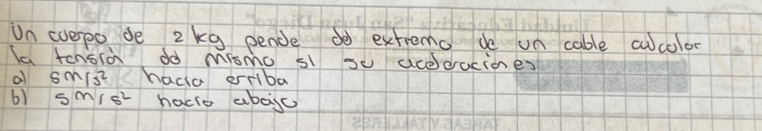 Un cuerpo de 2 kg pende del extremo de un cable calcolor
la tension del mismo si su aceleracion es
a) 5m/s² hacia arriba
b) 5m/s² hacia abajo